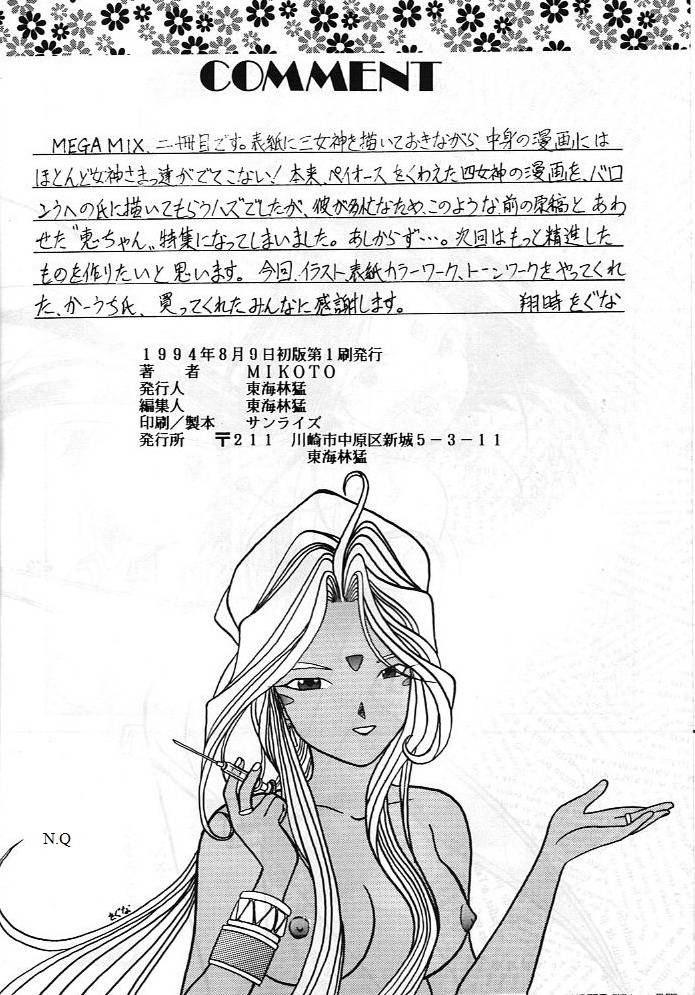 COMMENT
MEGA MIX、二冊目です。表紙に三女神を描いておきながら、中身の漫画には
ほとんど女神さまっ達がでてこない！本来、ペイオースをくわえた四女神の漫画を、バロ
ンうへの氏に描いてもらうハズでしたが、彼が多忙なため、このような前の原稿とあわ
せた“恵ちゃん„特集になってしまいました。あしからず…。次回はもっと精進した
ものを作りたいと思います。今回、イラスト、表紙カラーワーク、トーンワークをやってくれ
た、かーうち氏、買ってくれたみんなに感謝します。 翔時をぐな
1994年8月9日初版第1刷発行
著　者 MIKOTO
発行人 東海林猛
編集人 東海林猛
印刷／製本 サンライズ
発行所 〒211 川崎市中原区新城5－3－11
東海林猛
N.Q
をぐな